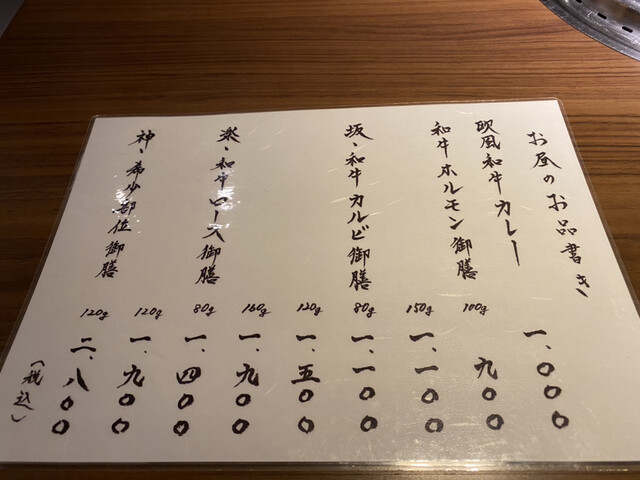 お昼のお品書き
欧風和牛カレー
一、〇〇〇
和牛ホルモン御膳
100g
九〇〇
150g
一、一〇〇
坂・和牛カルビ御膳
80g
一、一〇〇
120g
一、五〇〇
160g
一、九〇〇
楽・和牛ロース御膳
80g
一、四〇〇
120g
一、九〇〇
神・希少部位御膳
120g
二、八〇〇
(税込)